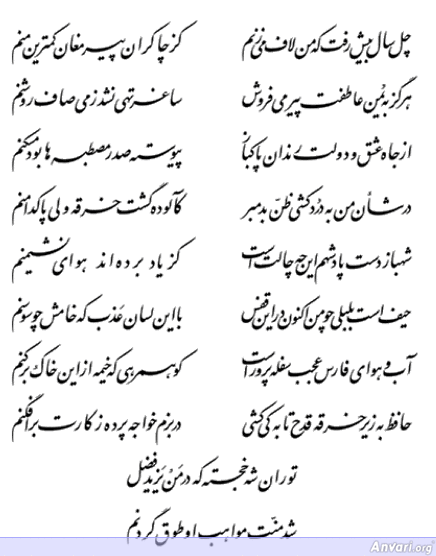 چل سال بیش رفت که من لاف می‌زنم کز چاکران پیر مغان کمترین منم
هرگز به یُمن عاطفت پیر می فروش ساغر تهی نشد ز می صاف روشنم
از جاه عشق و دولت رندان پاکباز پیوسته صدر مصطبه‌ها بود مسکنم
در شأن من به دُردکشی ظنّ بد مبر کآلوده گشت خرقه ولی پاکدامنم
شهباز دست پادشهم این چه حالت است کز یاد برده‌اند هوای نشیمنم
حیف است بلبلی چو من اکنون در این قفس با این لسان عَذب که خامش چو سوسنم
آب و هوای فارس عجب سفله‌پرور است کو همرهی که خیمه از این خاک برکنم
حافظ به زیر خرقه قدح تا به کی کشی در بزم خواجه پرده ز کارت برافکنم
توران شه خجسته که در مَن یَزید فضل
شد منّت مواهب او طوق گردنم
Anvari.org